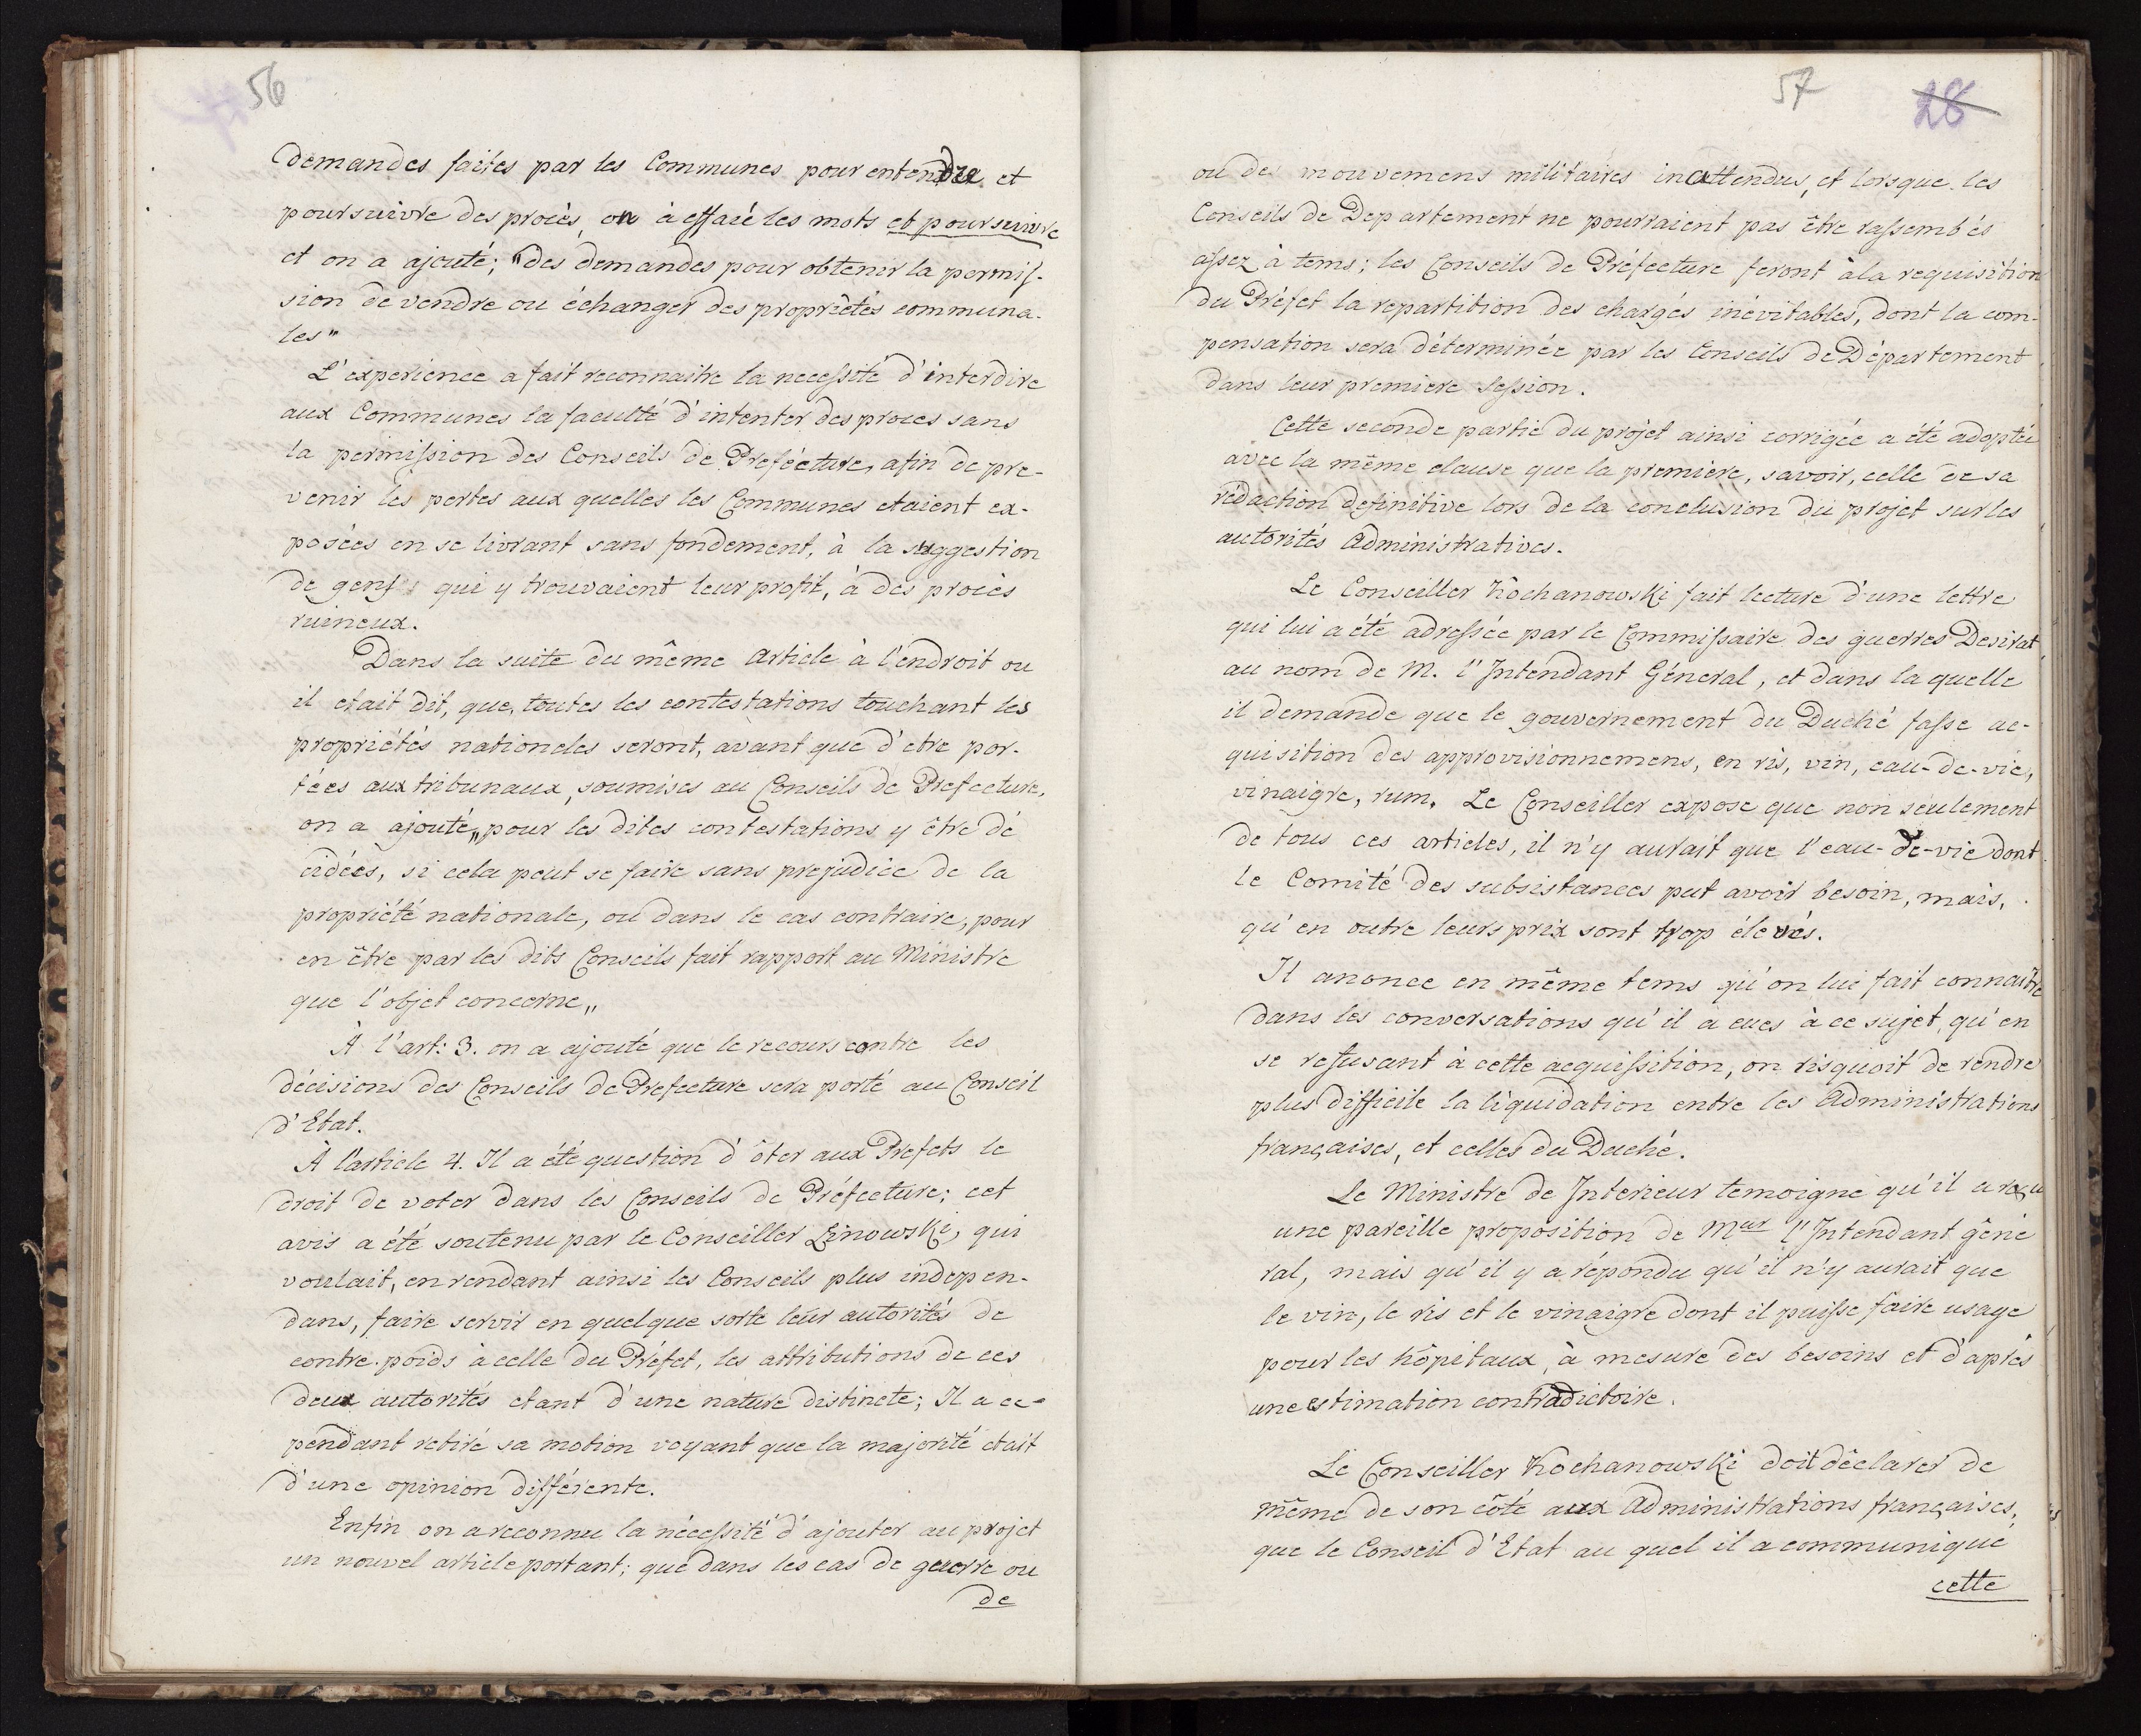 56
demandes faites par les Communes pour entendre et
poursuivre des procès, on à effacé les mots et poursuivre
et on a ajouté; "des demandes pour obtenir la permis-
sion de vendre ou échanger des propriètés communa-
les"
L'experience a fait reconnaitre la necessité d'interdire
aux Communes la faculté d'intenter des proces sans
la permission des Conseils de Preféeture, afin de pre-
venir les pertes aux quelles les Communes etaient ex-
posées en se livrant sans fondement, à la suggestion
de gens qui y trouvaient leur profit, à des procès
ruineux.
Dans la suite du même article à l'endroit ou
il etait dit, que, toutes les contestations touchant les
propriétés nationales seront, avant que d'etre por-
tées aux tribunaux, soumises au Conseils de Prefecture,
on a ajouté „pour les dites contestations y être dé
cidées, si cela peut se faire sans prejudice de la
propriété nationale, ou dans le cas contraire, pour
en être par les dits Conseils fait rapport au Ministre
que l'objet concerne„
À l'art: 3. on a ajouté que le recours contre les
décisions des Conseils de Prefecture sera porté au Conseil
d'Etat.
À l'article 4. Il a été question d'ôter aux Prefets le
droit de voter dans les Conseils de Préfecture; cet
avis a été soutenu par le Conseiller Linowski, qui
voulait, en rendant ainsi les Conseils plus indepen-
dans, faire servir en quelque sorte leur autorités de
contre-poids à celle du Préfet, les attributions de ces
deux autorités etant d'une nature distincte; Il a ce-
pendant retiré sa motion voyant que la majorité etait
d'une opinion différente.
Enfin on a reconnu la nécessité d'ajouter au projet
un nouvel article portant; que dans les cas de guerre ou
de
57
28
ou de mouvemens militaires inattendus, et lorsque les
Conseils de Departement ne pourraient pas être rassemblés
assez à tems; les Conseils de Préfecture feront à la requisition
du Préfet la repartition des chargés inévitables, dont la com-
pensation sera déterminée par les Conseils de Département
dans leur premiere session.
Cette seconde partie du projet ainsi corrigée a été adoptée
avec la même clause que la premiere, savoir, celle de sa
rédaction definitive lors de la conclusion du projet sur les
autorités Administratives.
Le Conseiller Kochanowski fait lecture d'une lettre
qui lui a été adressée par le Commissaire des guerres Desirat
au nom de M. l'Intendant Géneral, et dans la quelle
il demande que le gouvernement du Duché fasse ac-
quisition des approvisionnemens, en ris, vin, eau-de-vie,
vinaigre, rum. Le Conseiller expose que non seulement
de tous ces articles, il n'y aurait que l'eau-de-vie dont
le Comité des subsistances put avoir besoin, mais,
qu'en outre leurs prix sont trop élevés.
Il anonce en même tems qu'on lui fait connaitre
dans les conversations qu'il a eues à ce sujet, qu'en
se refusant à cette acquissition, on risquoit de rendre
plus difficile la liquidation entre les Administrations
françaises, et celles du Duché.
Le Ministre de Interieur temoigne qu'il a reçu
une pareille proposition de Meur l'Intendant géné
ral, mais qu'il y a répondu qu'il n'y aurait que
le vin, le ris et le vinaigre dont il puisse faire usage
pour les hôpitaux, à mesure des besoins et d'après
une estimation contradictoire.
Le Conseiller Kochanowski doit déclarer de
même de son côté aux Administrations françaises,
que le Conseil d'Etat au quel il a communiqué
cette